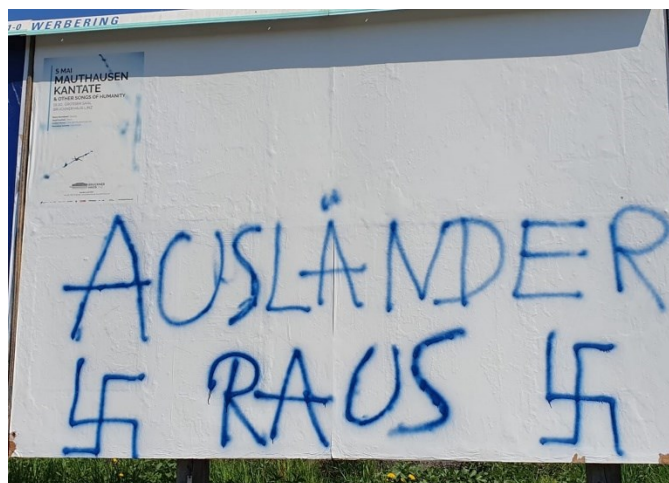 WERBERING
5 MAI
MAUTHAUSEN
KANTATE
& OTHER SONGS OF HUMANITY
AUSLÄNDER
RAUS